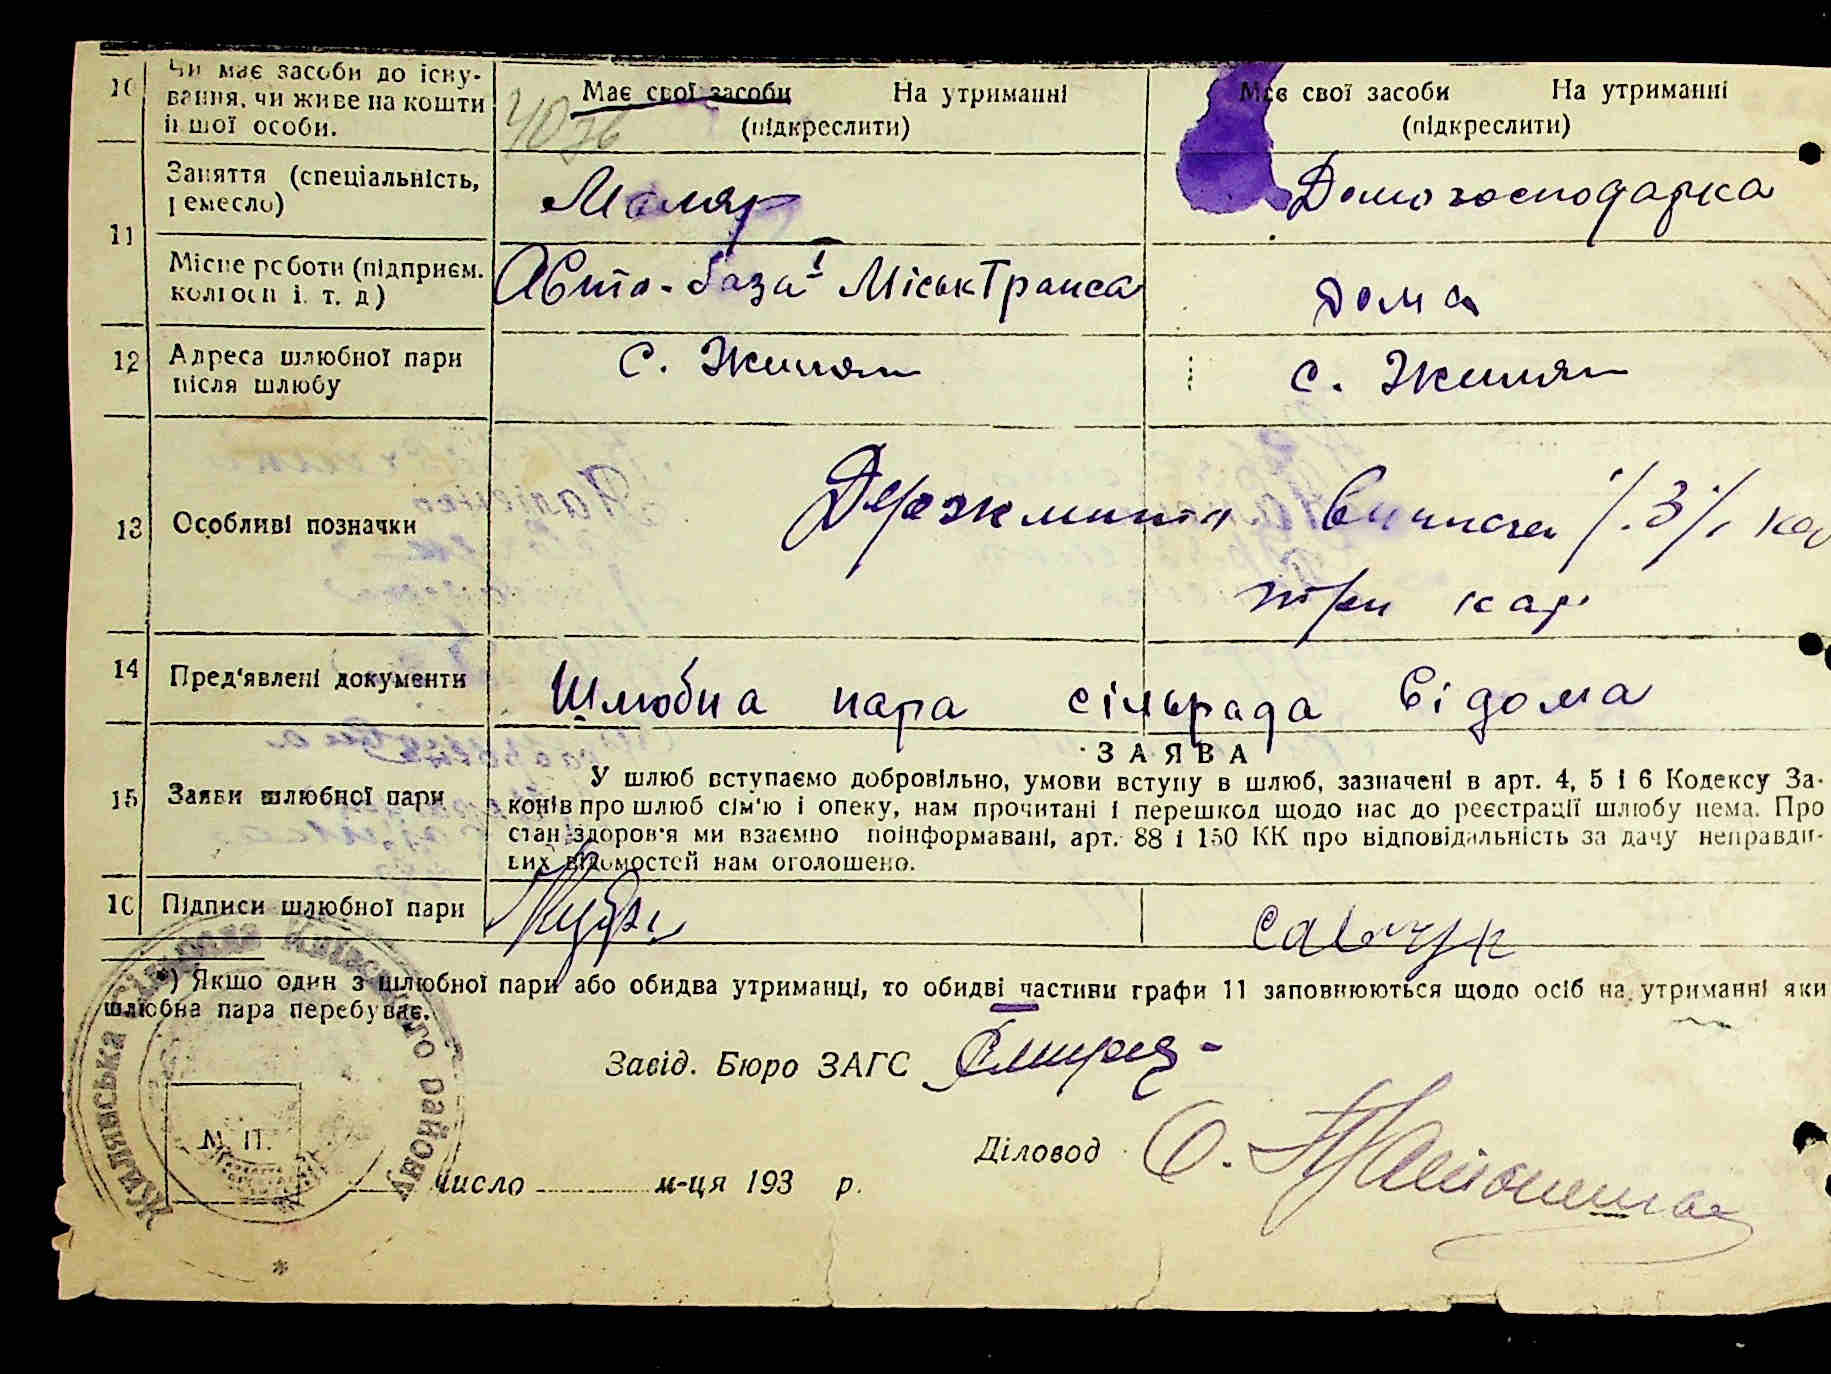 10 Чи має засоби до існу-
вання, чи живе на кошти
іншої особи.
Має свої засоби На утриманні
(підкреслити)
Має свої засоби На утриманні
(підкреслити)
11 Заняття (спеціальність,
ремесло)
Маляр
Домогосподарка
Місце роботи (підприєм.
колгосп і. т. д)
Авто-база 1 МіськТранса
Дома
12 Адреса шлюбної пари
після шлюбу
с. Жиляни
с. Жиляни
13 Особливі позначки
Держмито 3 кар
три кар
14 Пред'явлені документи
Шлюбна пара сільрада відома
15 Заяви шлюбної пари
ЗАЯВА
У шлюб вступаємо добровільно, умови вступу в шлюб, зазначені в арт. 4, 5 і 6 Кодексу За-
конів про шлюб сім'ю і опеку, нам прочитані і перешкод щодо нас до реєстрації шлюбу нема. Про
стан здоров'я ми взаємно поінформавані, арт. 88 і 150 КК про відповідальність за дачу неправди-
вих відомостей нам оголошено.
16 Підписи шлюбної пари
Савчук
*) Якщо один з шлюбної пари або обидва утриманці, то обидві частини графи 11 заповнюються щодо осіб на утриманні яких
шлюбна пара перебуває.
Завід. Бюро ЗАГС
Діловод
Жилянська сільрада Київського району
М. П.
число м-ця 193 р.